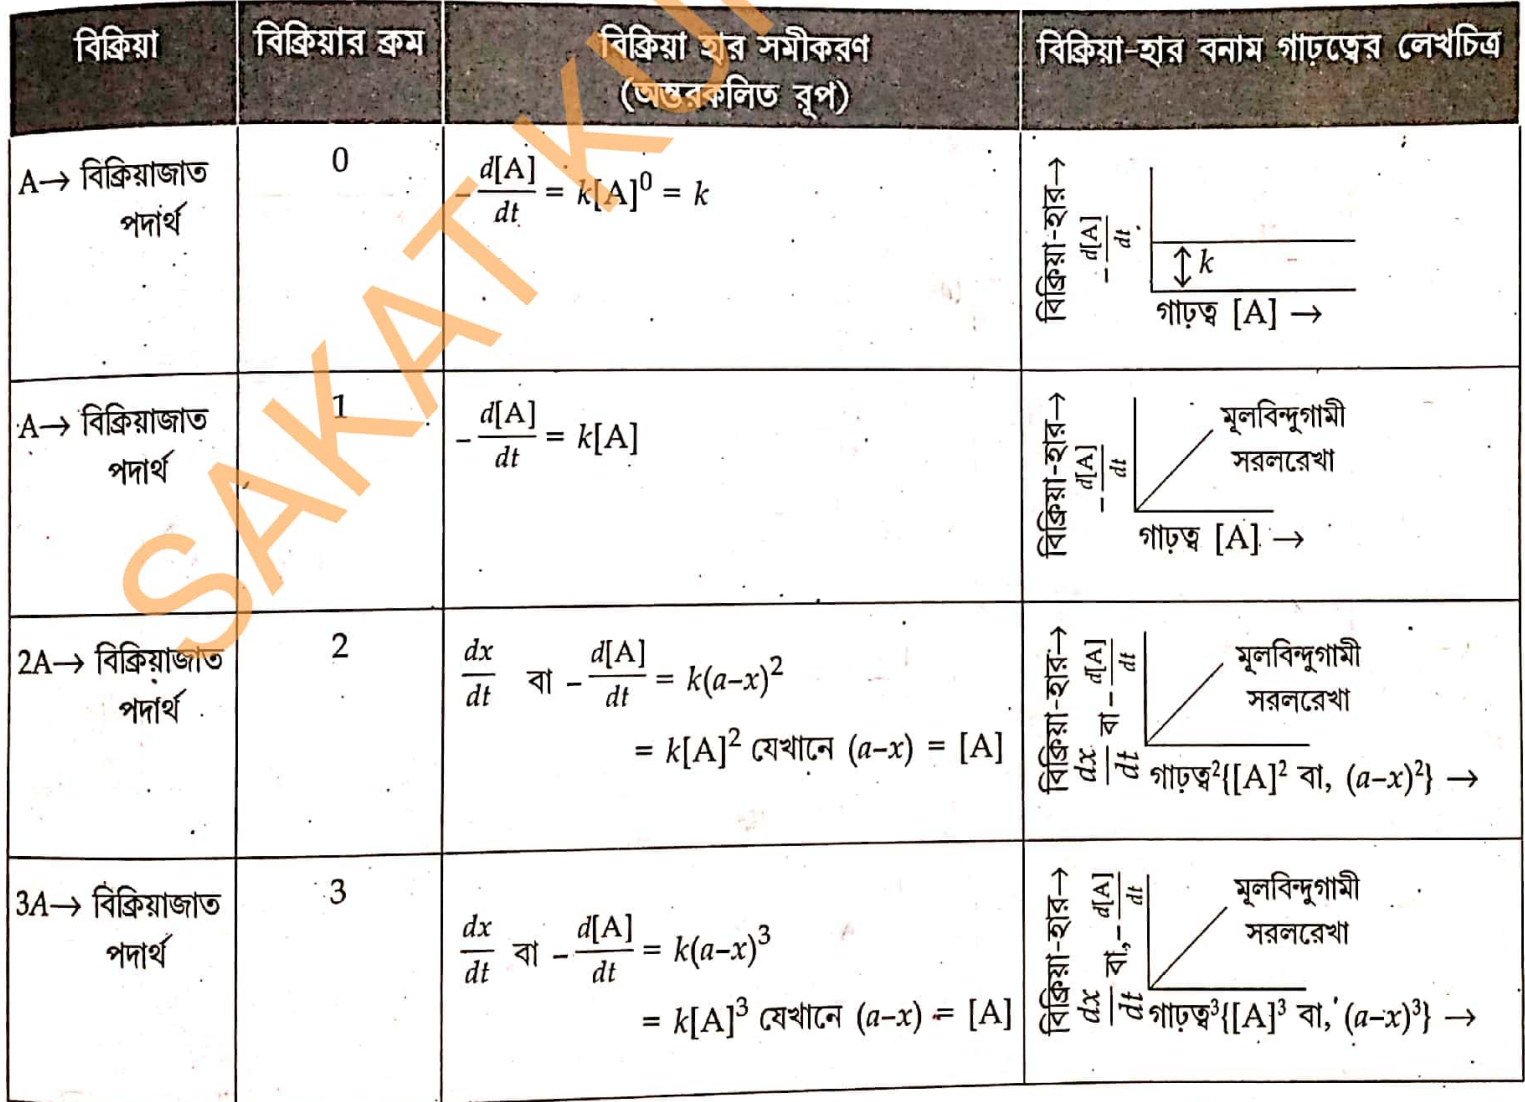 বিক্রিয়া
বিক্রিয়ার ক্রম
বিক্রিয়া হার সমীকরণ
(অন্তরকলিত রূপ)
বিক্রিয়া-হার বনাম গাঢ়ত্বের লেখচিত্র
A→ বিক্রিয়াজাত
পদার্থ
0
-d[A]/dt = k[A]⁰ = k
বিক্রিয়া-হার→
-d[A]/dt
k
গাঢ়ত্ব [A] →
A→ বিক্রিয়াজাত
পদার্থ
1
-d[A]/dt = k[A]
বিক্রিয়া-হার→
-d[A]/dt
মূলবিন্দুগামী
সরলরেখা
গাঢ়ত্ব [A] →
2A→ বিক্রিয়াজাত
পদার্থ
2
dx/dt বা -d[A]/dt = k(a-x)²
= k[A]² যেখানে (a-x) = [A]
বিক্রিয়া-হার→
dx/dt বা -d[A]/dt
মূলবিন্দুগামী
সরলরেখা
গাঢ়ত্ব²{[A]² বা, (a-x)²} →
3A→ বিক্রিয়াজাত
পদার্থ
3
dx/dt বা -d[A]/dt = k(a-x)³
= k[A]³ যেখানে (a-x) = [A]
বিক্রিয়া-হার→
dx/dt বা,-d[A]/dt
মূলবিন্দুগামী
সরলরেখা
গাঢ়ত্ব³{[A]³ বা, (a-x)³} →
SAKAT KU